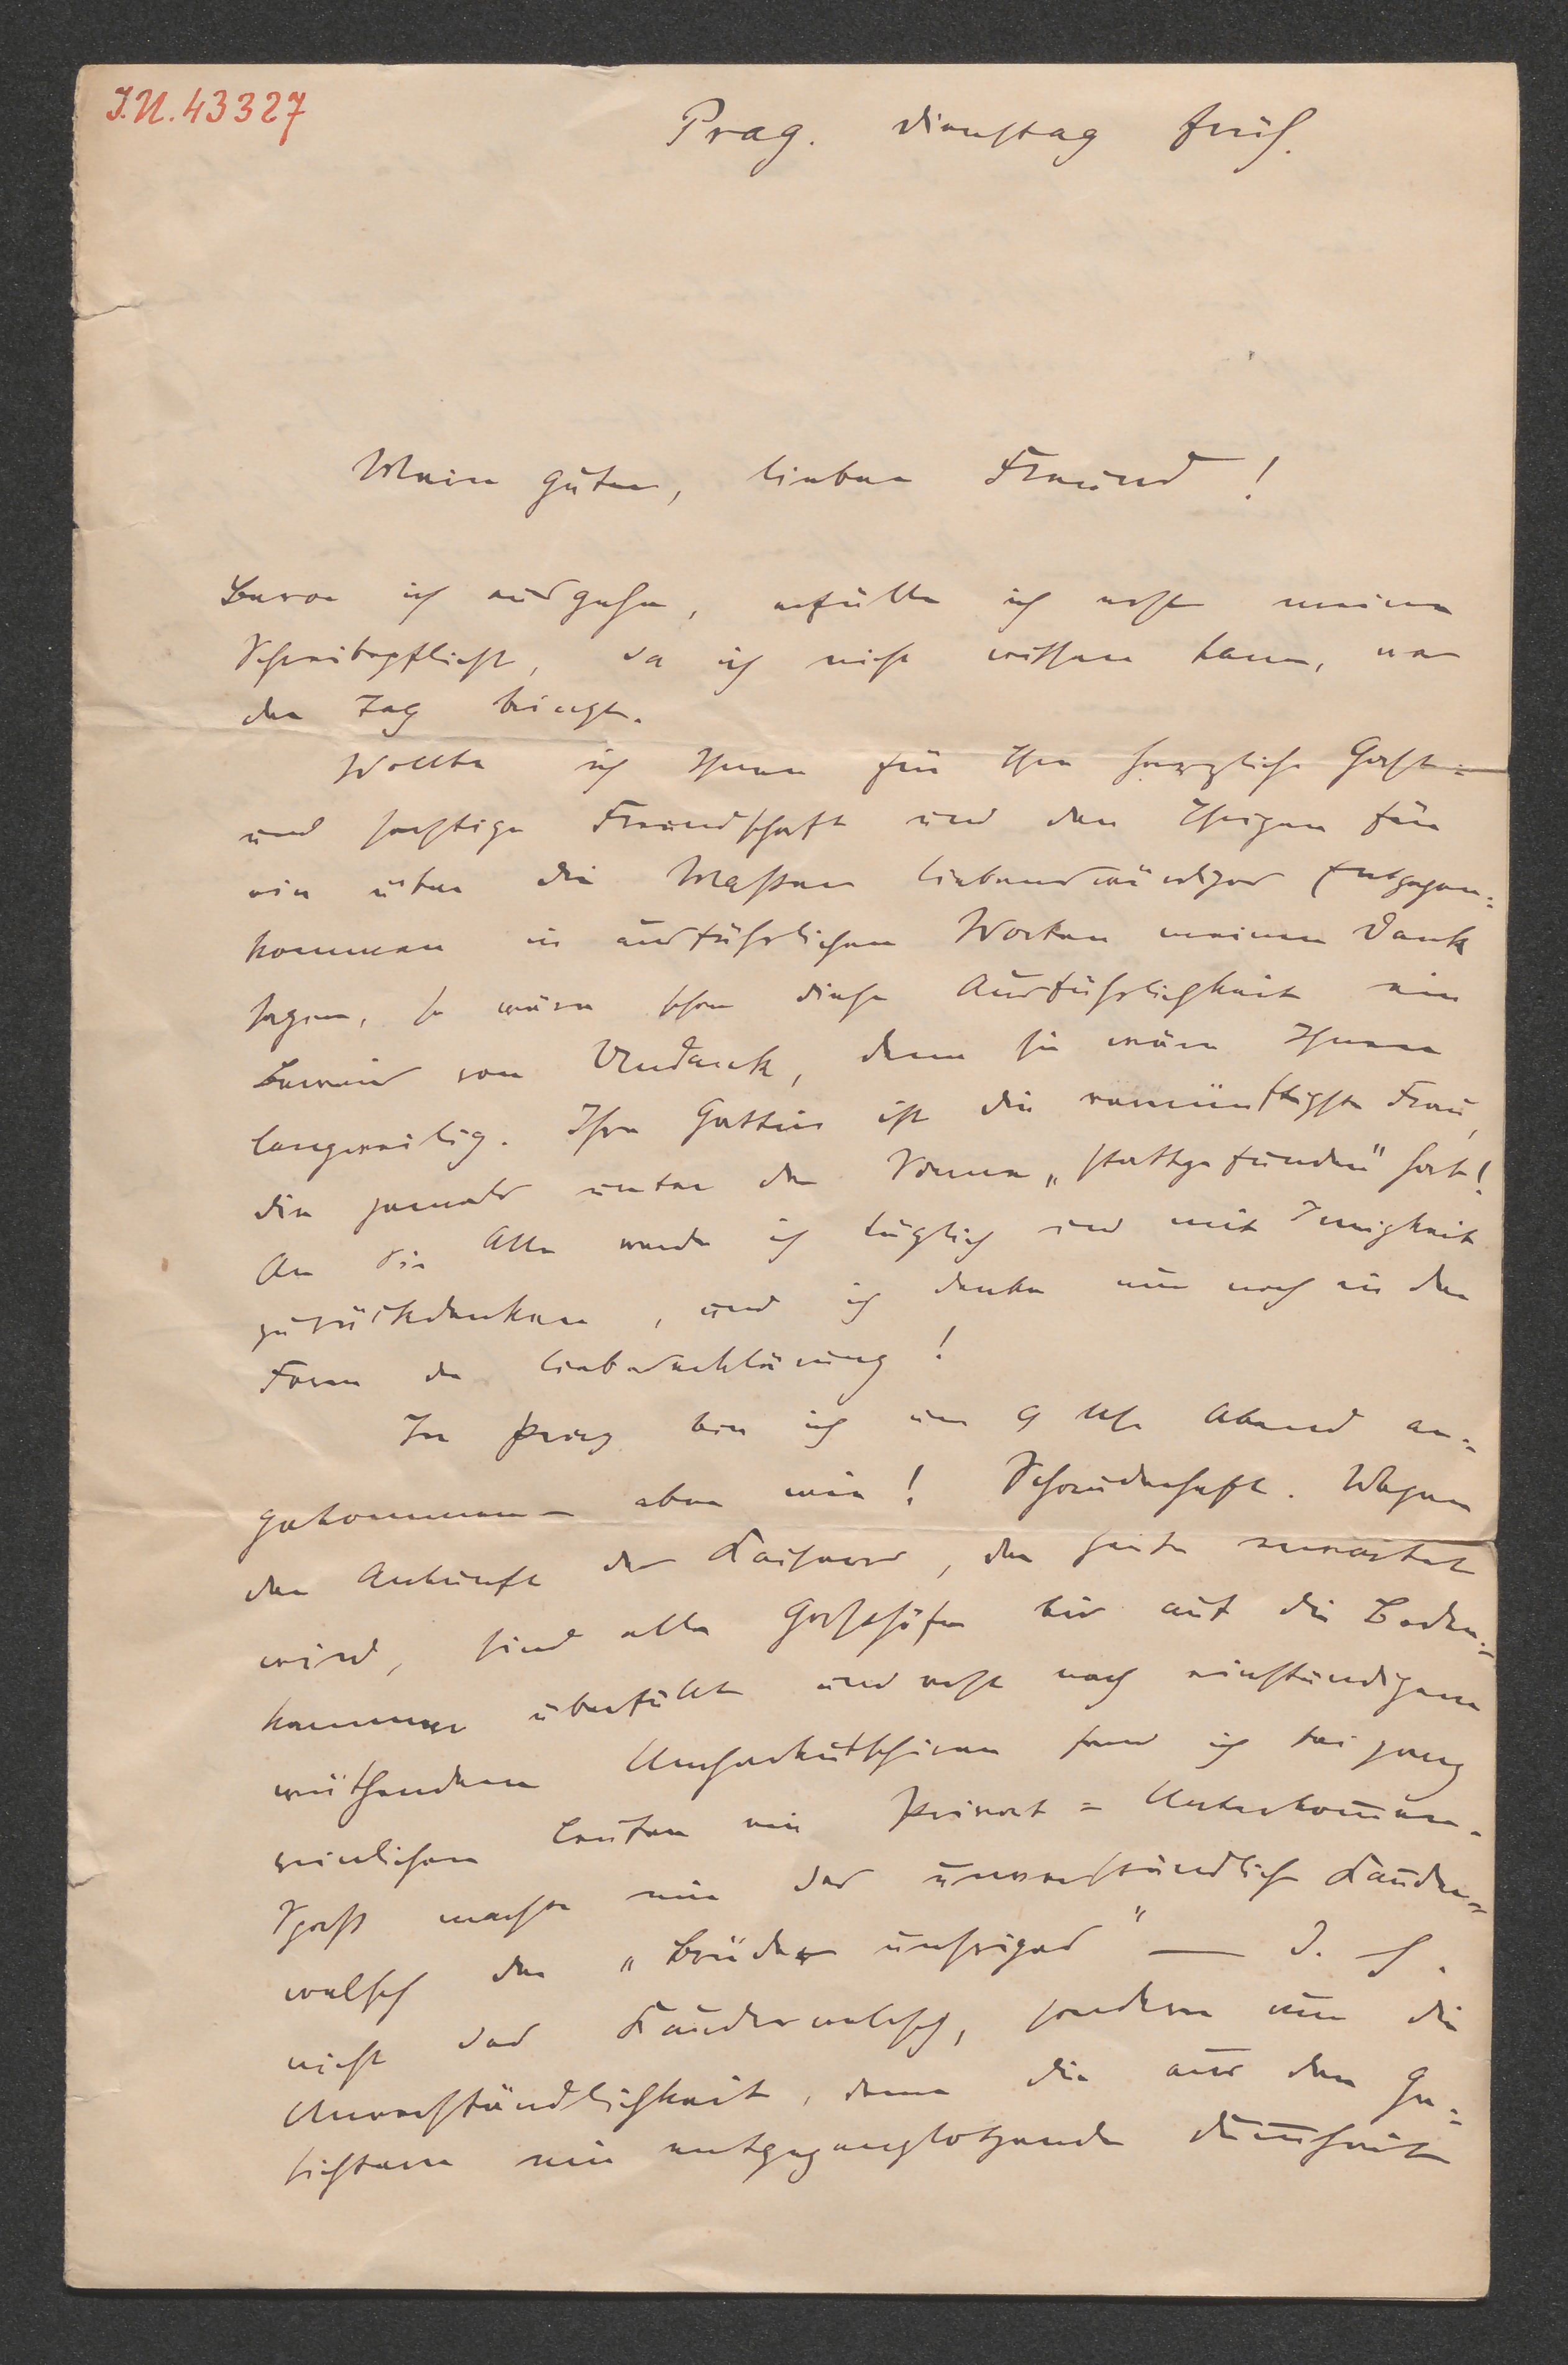 I.N. 43327
Prag. Dienstag früh.
Mein guter, lieber Freund!
Bevor ich ausgehe, erfülle ich erst meine
Schreibepflicht, da ich nicht wissen kann, was
der Tag bringt.
Wollte ich Ihnen für Ihre herzliche Gast=
und sonstige Freundschaft und den Ihrigen für
ein über die Massen liebenswürdiges Entgegen=
kommen in ausführlichen Worten meinen Dank
sagen, so wäre schon diese Ausführlichkeit ein
Beweis von Undank, denn sie wäre Ihnen
langweilig. Ihre Gattin ist die vernünftigste Frau,
die jemals unter der Sonne „stattgefunden" hat!
An Sie Alle werde ich täglich und mit Innigkeit
zurückdenken, und ich denke nur noch in der
Form der Liebeserklärung!
In Prag bin ich um 9 Uhr Abend an=
gekommen – aber wie! Schauderhaft. Wegen
der Ankunft des Kaisers, der heute erwartet
wird, sind alle Gasthöfe bis auf die Boden=
kammer überfüllt und erst nach einstündigem
wüthendem Umherkutschiren fand ich bei ganz
reinlichen Leuten ein Privat=Unterkommen.
Spass machte mir das unverständliche Kauder=
welsch der „Brüder unsriges" — d. h.
nicht das Kauderwelsch, sondern nur die
Unverständlichkeit, denn die aus den Ge=
sichtern mir entgegenglotzende Dummheit